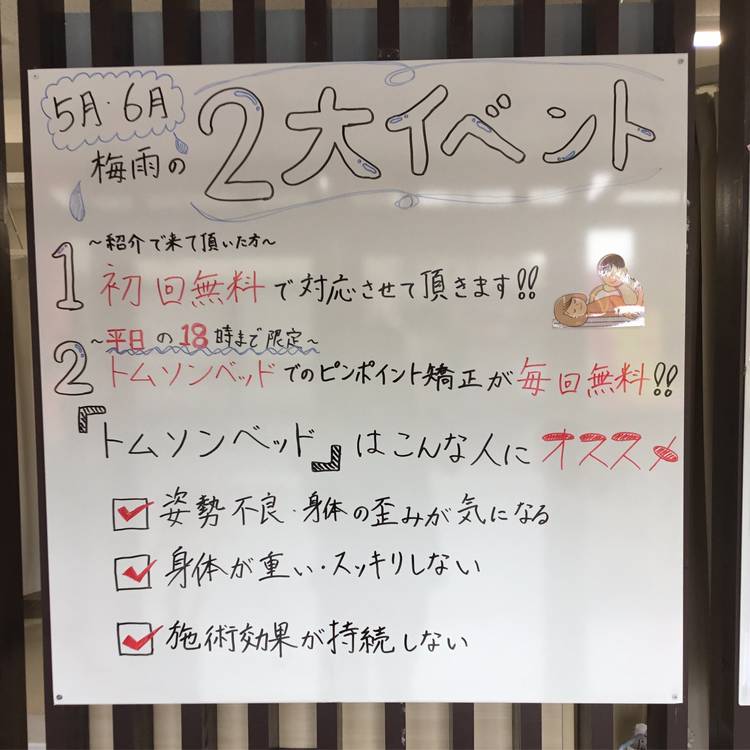 5月・6月
梅雨の
2大イベント
1 〜紹介で来て頂いた方〜
初回無料で対応させて頂きます!!
2 〜平日の18時まで限定〜
トムソンベッドでのピンポイント矯正が毎回無料!!
『トムソンベッド』はこんな人にオススメ
姿勢不良・身体の歪みが気になる
身体が重い・スッキリしない
施術効果が持続しない